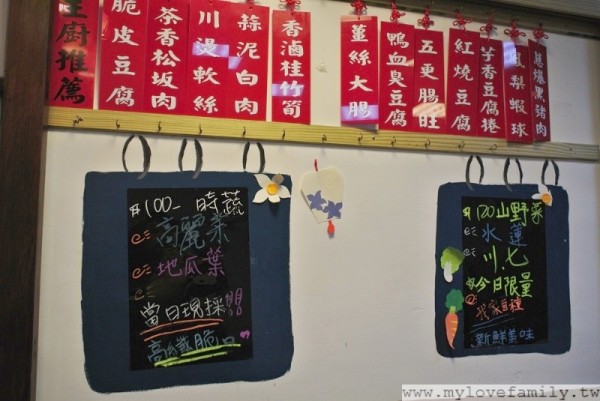 主廚推薦
脆皮豆腐
茶香松坂肉
川燙軟絲
蒜泥白肉
香滷桂竹筍
薑絲大腸
鴨血臭豆腐
五更腸旺
紅燒豆腐
芋香豆腐捲
鳳梨蝦球
蔥爆黑豬肉
$100- 時蔬
高麗菜
地瓜葉
當日現採
高纖脆口
$120山野菜
水蓮
川七
今日限量
我家自種
新鮮美味
www.mylovefamily.tw